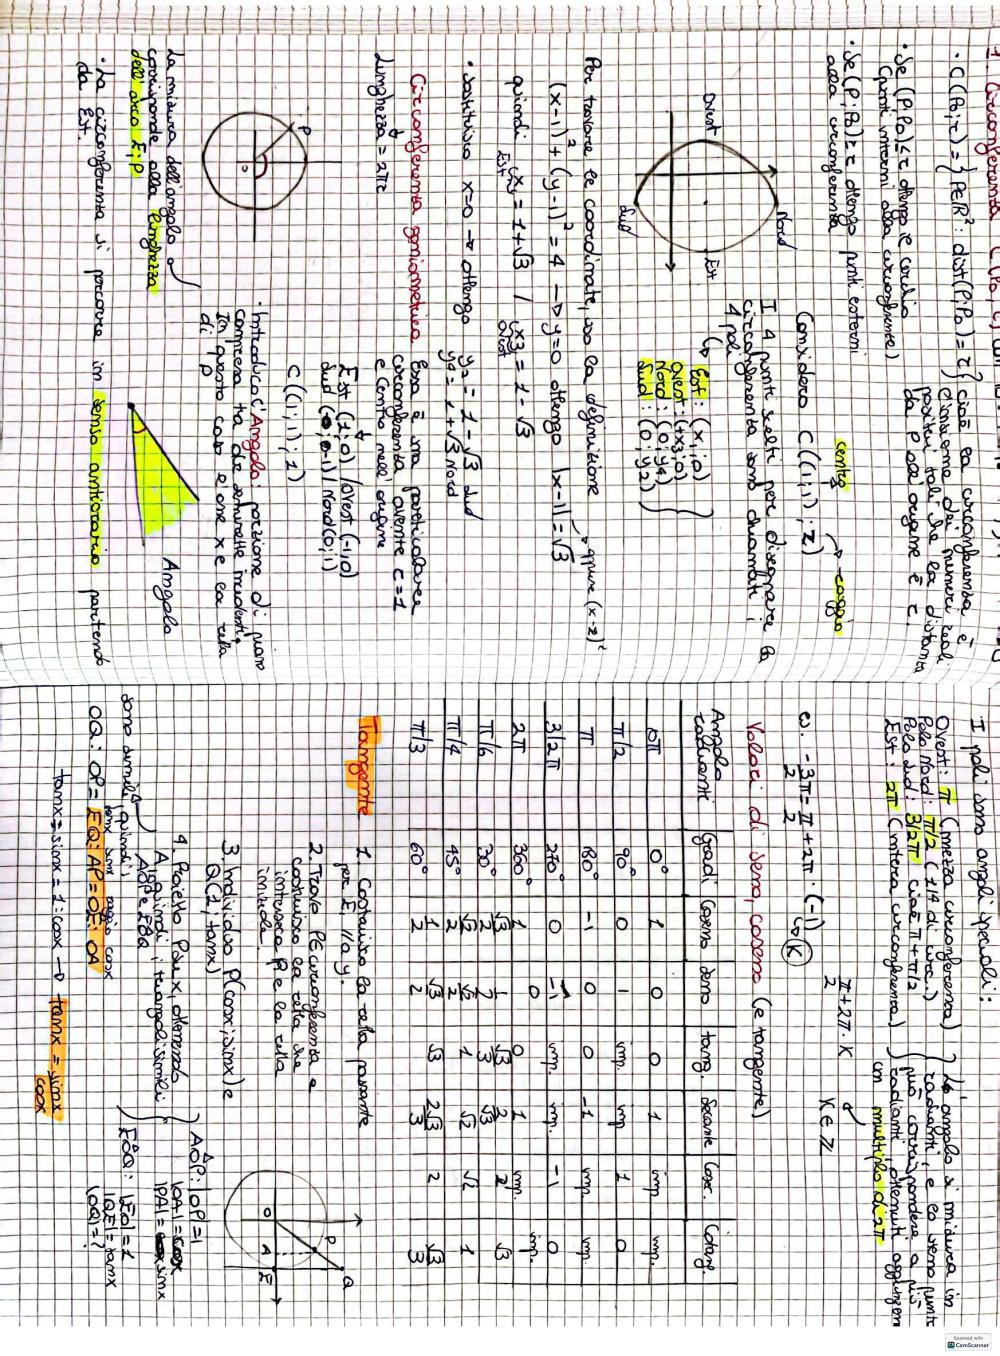 1 Circonferenza
• C(P0; r) = { P∈R²: dist(P; P0) = r } cioè la circonferenza è
l'insieme dei numeri reali
positivi tali che la distanza
da P all'origine è r.
• Se (P; P0) ≤ r ottengo il cerchio
(punti interni alla circonferenza)
• Se (P; P0) ≥ r ottengo punti esterni
alla circonferenza
centro
raggio
Considero C((1;1); 2)
Ovest
Nord
Est
Sud
I 4 punti scelti per disegnare la
circonferenza sono chiamati
4 poli
Est: (x1; 0)
Ovest: (x3; 0)
Nord: (0; y4)
Sud: (0; y2)
Per trovare le coordinate, uso la definizione
oppure (x-2)²
(x-1)² + (y-1)² = 4 → y=0 ottengo |x-1| = √3
quindi x1 = 1+√3 / x3 = 1-√3
Est
Ovest
• Sostituisco x=0 → ottengo y2 = 1-√3 Sud
y4 = 1+√3 Nord
Circonferenza goniometrica
Essa è una particolare
circonferenza avente r=1
e centro nell'origine
Lunghezza = 2πr
Est (1;0) / Ovest (-1;0)
Sud (0;-1) / Nord (0;1)
C((1;1);1)
P
O
• Introduco l'Angolo: porzione di piano
compresa tra due semirette incidenti.
In questo caso l'asse x e la retta
di P
La misura dell'angolo
corrisponde alla lunghezza
dell'arco E;P
Angolo
• La circonferenza si percorre in senso antiorario partendo
da Est.
I poli sono angoli speciali:
Ovest: π (mezza circonferenza)
Polo Nord: π/2 (1/4 di circ.)
Polo Sud: 3/2π cioè π+π/2
Est: 2π (intera circonferenza)
Lo angolo si misura in
radianti, e lo stesso punto
può corrispondere a più
radianti, ottenuti aggiungendo
un multiplo di 2π
es. -3π/2 = π/2 + 2π·(-1) → K
π/2 + 2π·K
K∈Z
Valori di seno, coseno (e tangente)
Angolo radianti | Gradi | Coseno | Seno | tang. | Secante | Cosec. | Cotang.
0π | 0° | 1 | 0 | 0 | 1 | imp | imp
π/2 | 90° | 0 | 1 | imp. | imp | 1 | 0
π | 180° | -1 | 0 | 0 | -1 | imp | imp.
3/2π | 270° | 0 | -1 | imp. | imp. | -1 | 0
2π | 360° | 1 | 0 | 0 | 1 | imp. | imp.
π/6 | 30° | √3/2 | 1/2 | √3/3 | 2/√3 | 2 | √3
π/4 | 45° | √2/2 | √2/2 | 1 | √2 | √2 | 1
π/3 | 60° | 1/2 | √3/2 | √3 | 2 | 2√3/3 | √3/3
Tangente
1. Costruisco la retta passante
per E, // a y.
2. Trovo P∈circonferenza e
costruisco la retta che
interseca P e la retta
iniziale
3. Individuo P(cosx; sinx) e
Q(1; tanx)
4. Proietto P su x, ottenendo
A, quindi i triangoli simili
AOP e EOQ
O
A
E
P
Q
AÔP: |OP| = 1
|OA| = cosx
|PA| = sinx
EÔQ: |EO| = 1
|QE| = tanx
|OQ| = ?
sono simili, quindi
OQ : OP = EQ : AP = OE : OA
tanx sinx raggio cosx
tanx : sinx = 1 : cosx → tanx = sinx/cosx
Scanned with
CamScanner